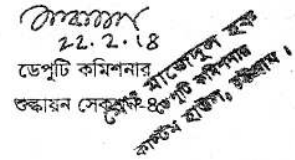 22.2.18
ডেপুটি কমিশনার
শুল্কায়ন সেকশন-৪
মাজেদুল হক
ডেপুটি কমিশনার
কাস্টম হাউস, চট্টগ্রাম।